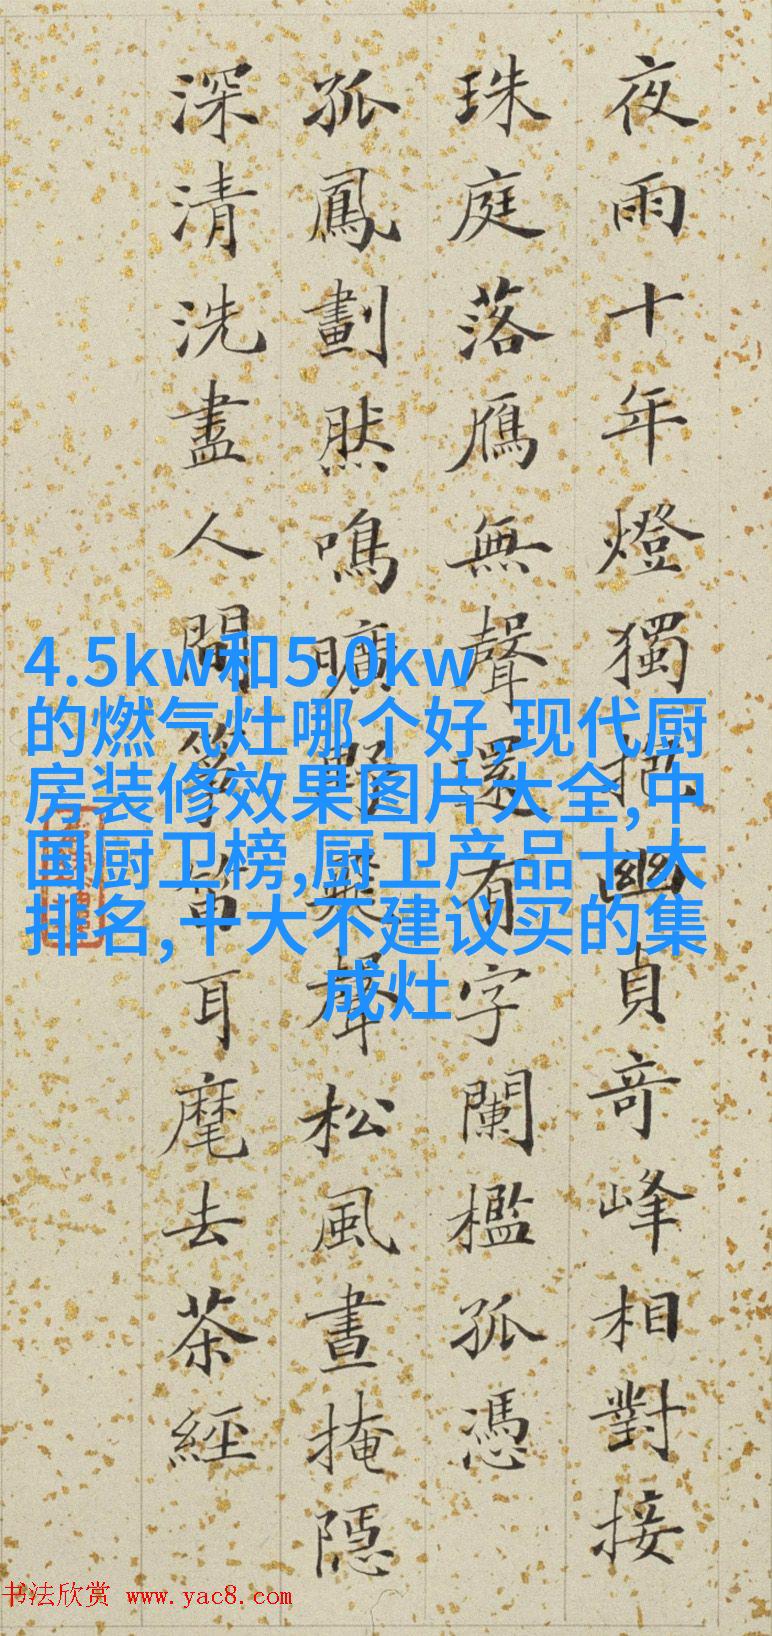 夜雨十年燈獨幽貞奇峰相對接
珠庭落鴈無聲還有字闌檻孤憑
孤鳳劃然鳴曠野聲松風晝掩隱
深清洗盡人間箏笛耳麾去茶經
4.5kw和5.0kw
的燃气灶哪个好,现代厨
房装修效果图片大全,中
国厨卫榜,厨卫产品十大
排名,十大不建议买的集
成灶
书法欣赏 www.yac8.com